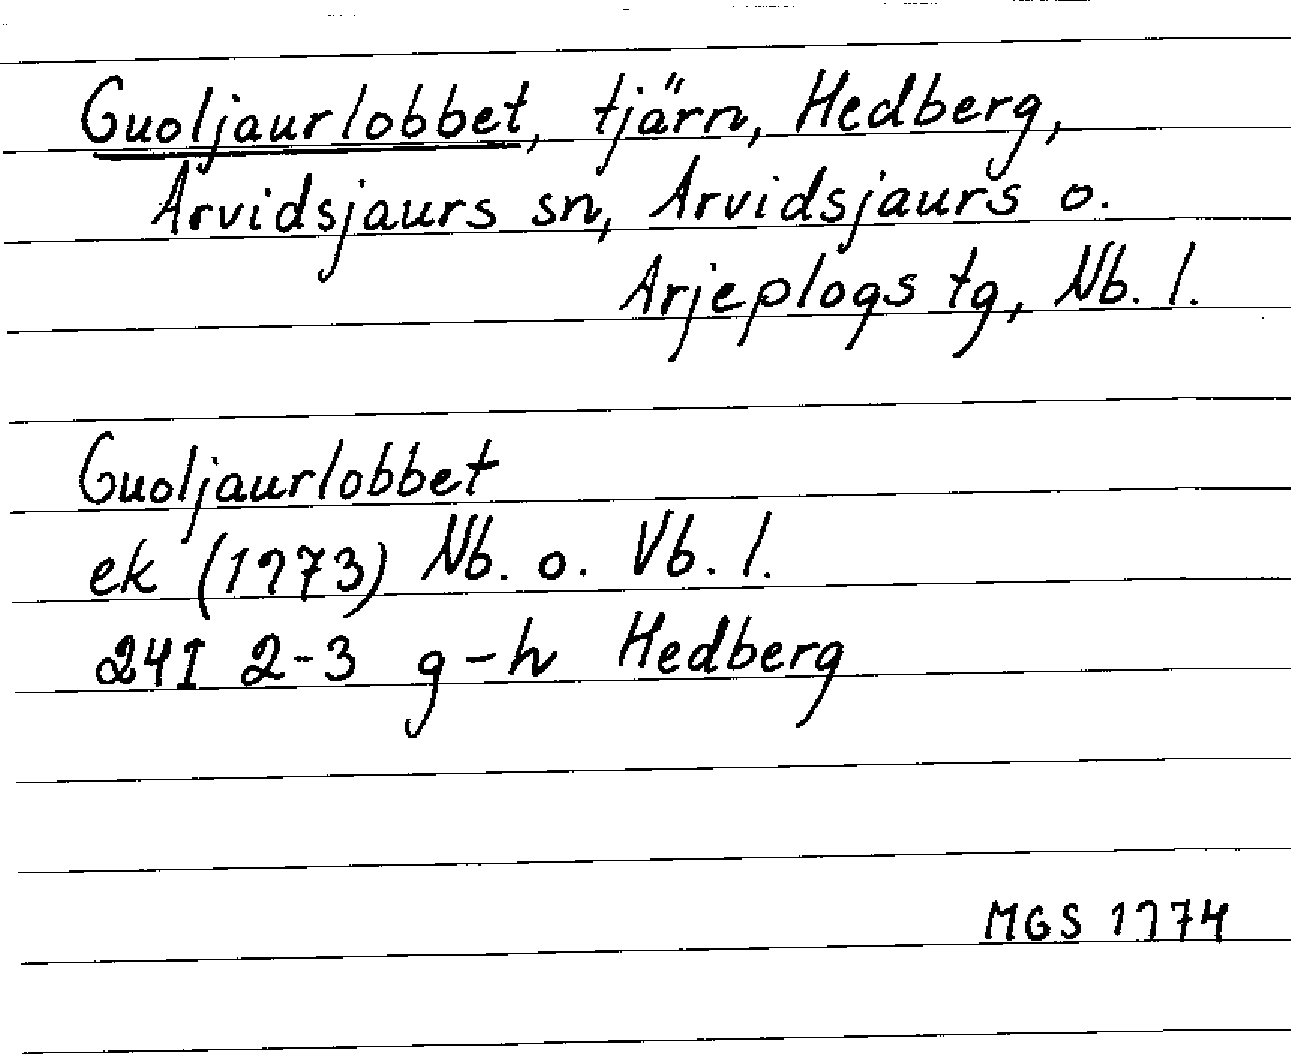 Guoljaurlobbet, tjärn, Hedberg,
Arvidsjaurs sn, Arvidsjaurs o.
Arjeplogs tg, Nb. l.
Guoljaurlobbet
ek (1973) Nb. o. Vb. l.
24I 2-3 g-h Hedberg
MGS 1974